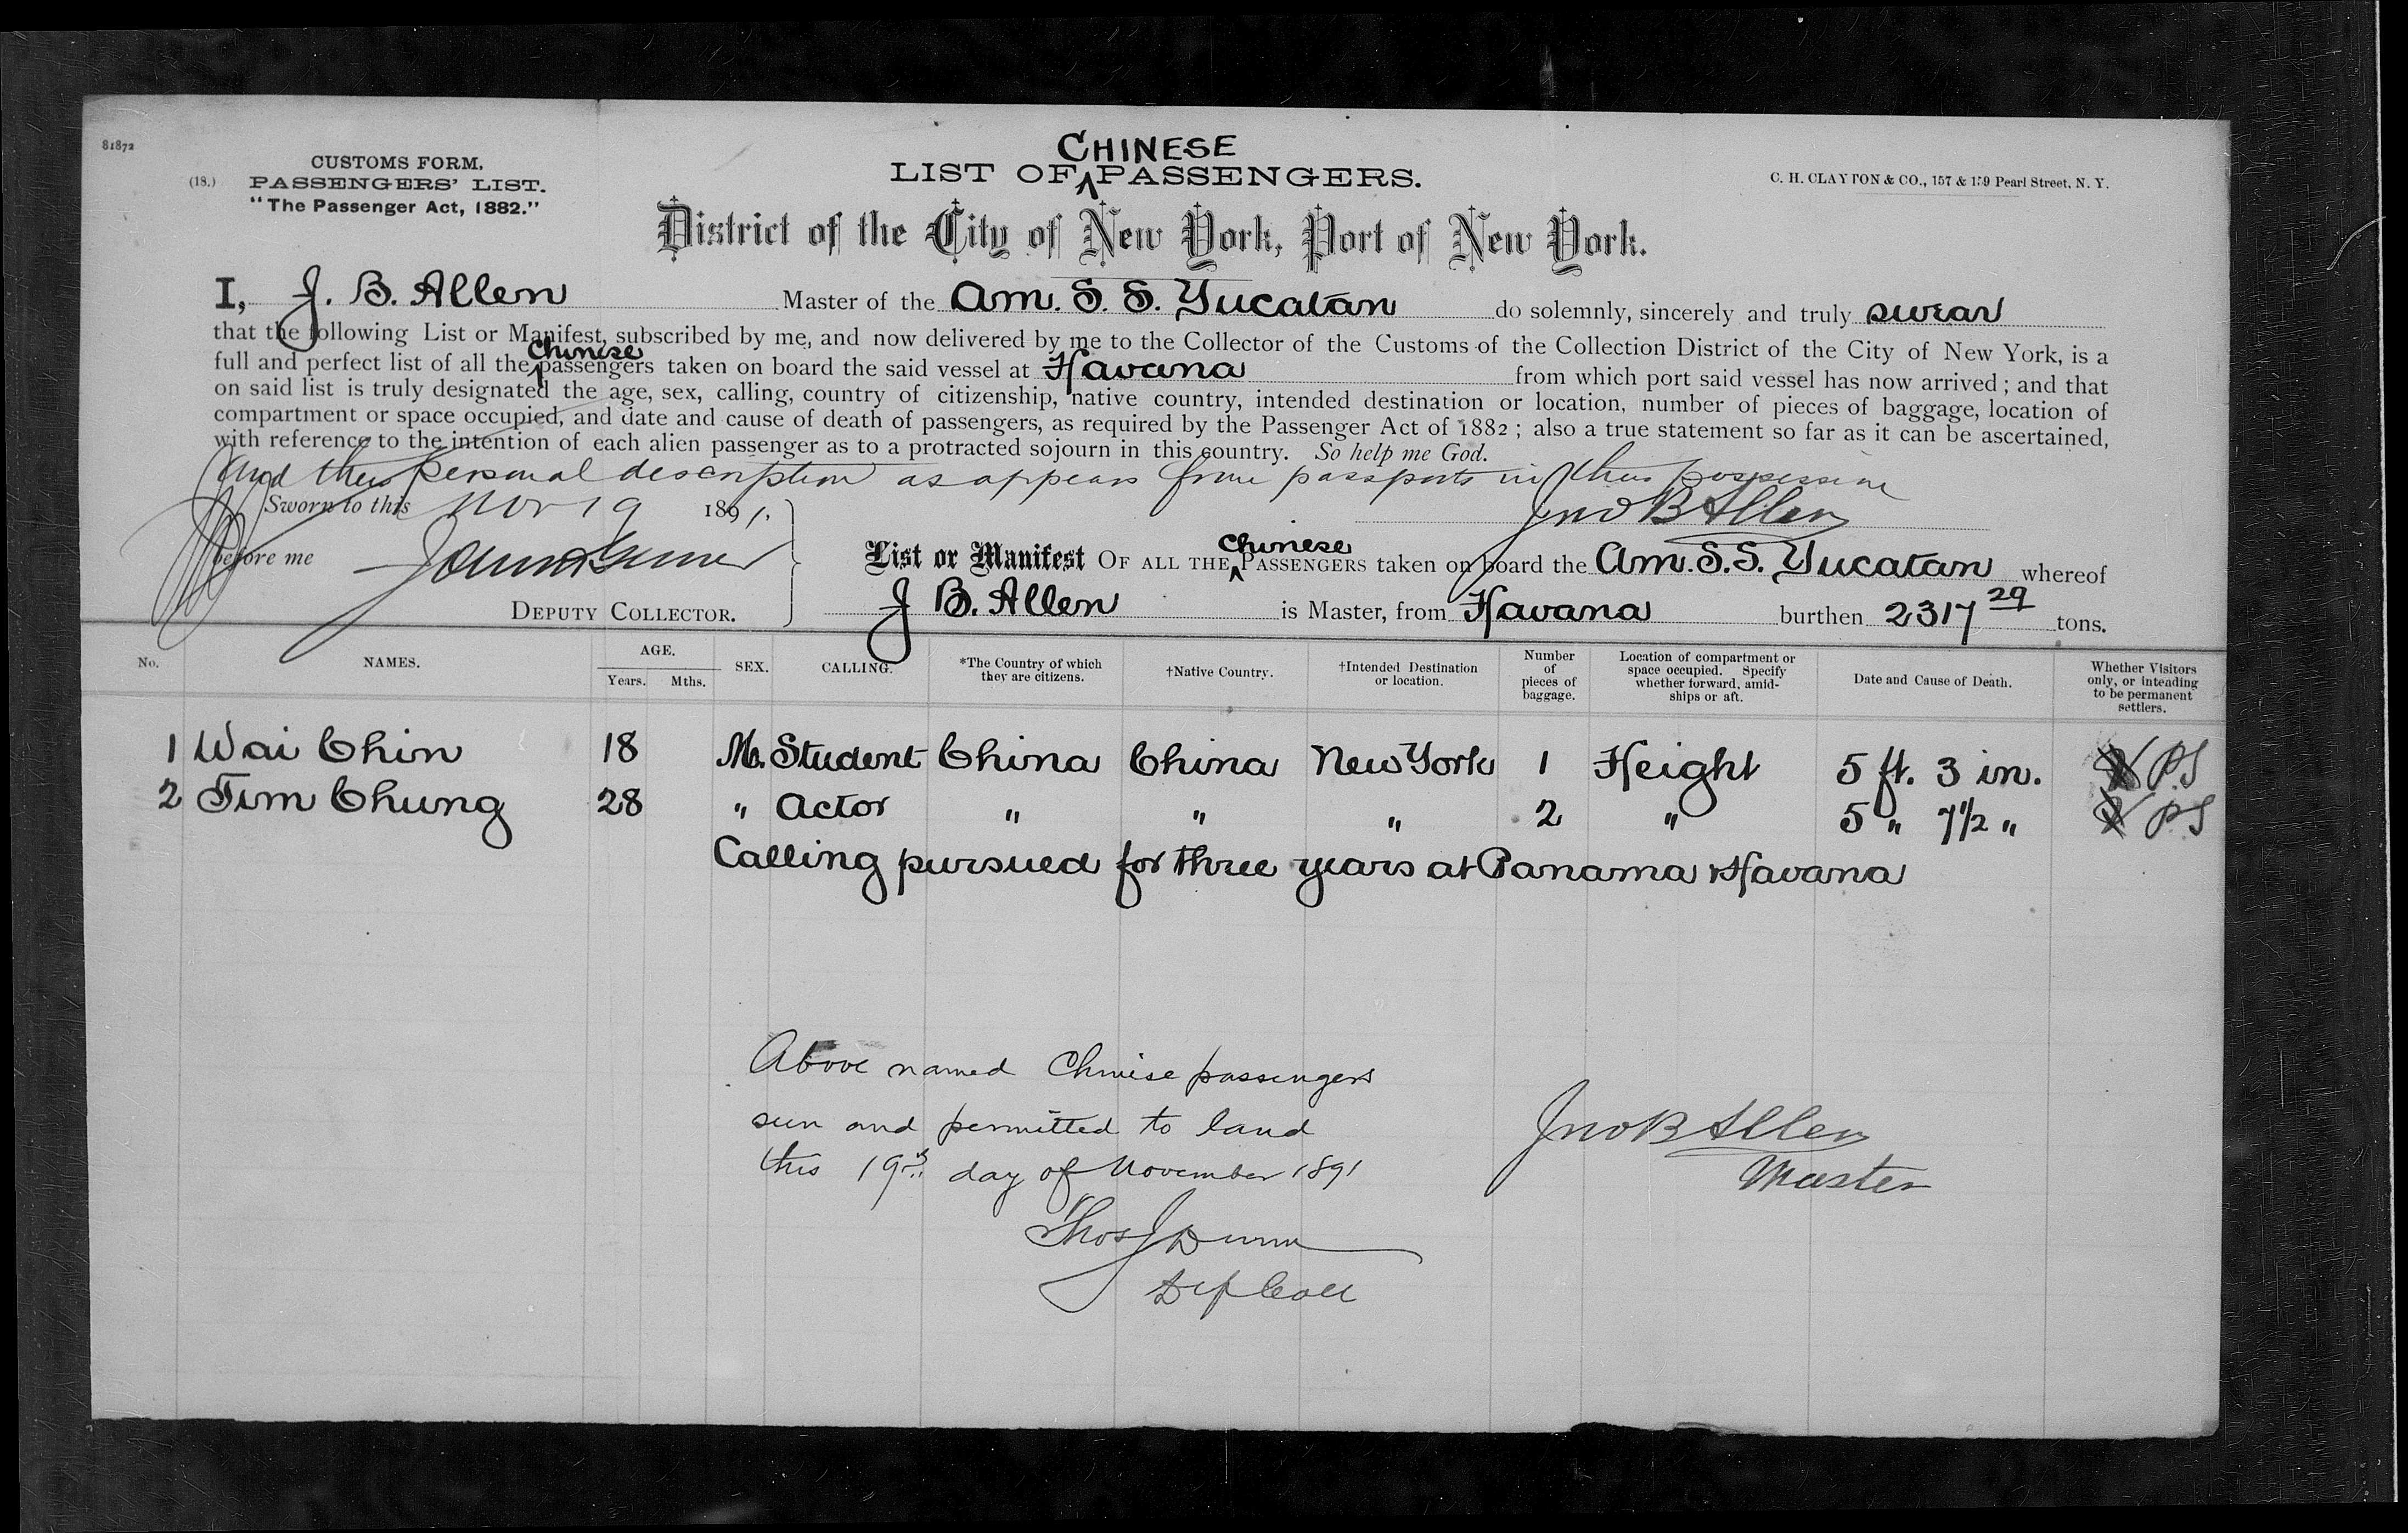 81872
CUSTOMS FORM,
(18.) PASSENGERS' LIST.
"The Passenger Act, 1882."
CHINESE
LIST OF PASSENGERS.
C. H. CLAYTON & CO., 157 & 159 Pearl Street, N. Y.
District of the City of New York, Port of New York.
I, J. B. Allen Master of the Am. S. S. Yucatan do solemnly, sincerely and truly swear
that the following List or Manifest, subscribed by me, and now delivered by me to the Collector of the Customs of the Collection District of the City of New York, is a
full and perfect list of all the Chinese passengers taken on board the said vessel at Havana from which port said vessel has now arrived; and that
on said list is truly designated the age, sex, calling, country of citizenship, native country, intended destination or location, number of pieces of baggage, location of
compartment or space occupied, and date and cause of death of passengers, as required by the Passenger Act of 1882; also a true statement so far as it can be ascertained,
with reference to the intention of each alien passenger as to a protracted sojourn in this country. So help me God.
and their personal description as appears from passports in their possession
Sworn to this Nov 19 1891. Jno B Allen
before me
DEPUTY COLLECTOR.
List or Manifest OF ALL THE Chinese PASSENGERS taken on board the Am. S.S. Yucatan whereof
J B. Allen is Master, from Havana burthen 2317 29 tons.
No. NAMES. AGE. Years. Mths. SEX. CALLING. *The Country of which they are citizens. †Native Country. †Intended Destination or location. Number of pieces of baggage. Location of compartment or space occupied. Specify whether forward, amidships or aft. Date and Cause of Death. Whether Visitors only, or intending to be permanent settlers.
1 Wai Chin 18 M. Student China China New York 1 Height 5 ft. 3 in. PS
2 Tim Chung 28 " Actor " " " 2 " 5 " 7 1/2 " PS
Calling pursued for three years at Panama & Havana
Above named Chinese passengers
seen and permitted to land
this 19th day of November 1891
Jno B Allen
Master
Thos J Dunn
Dep Coll